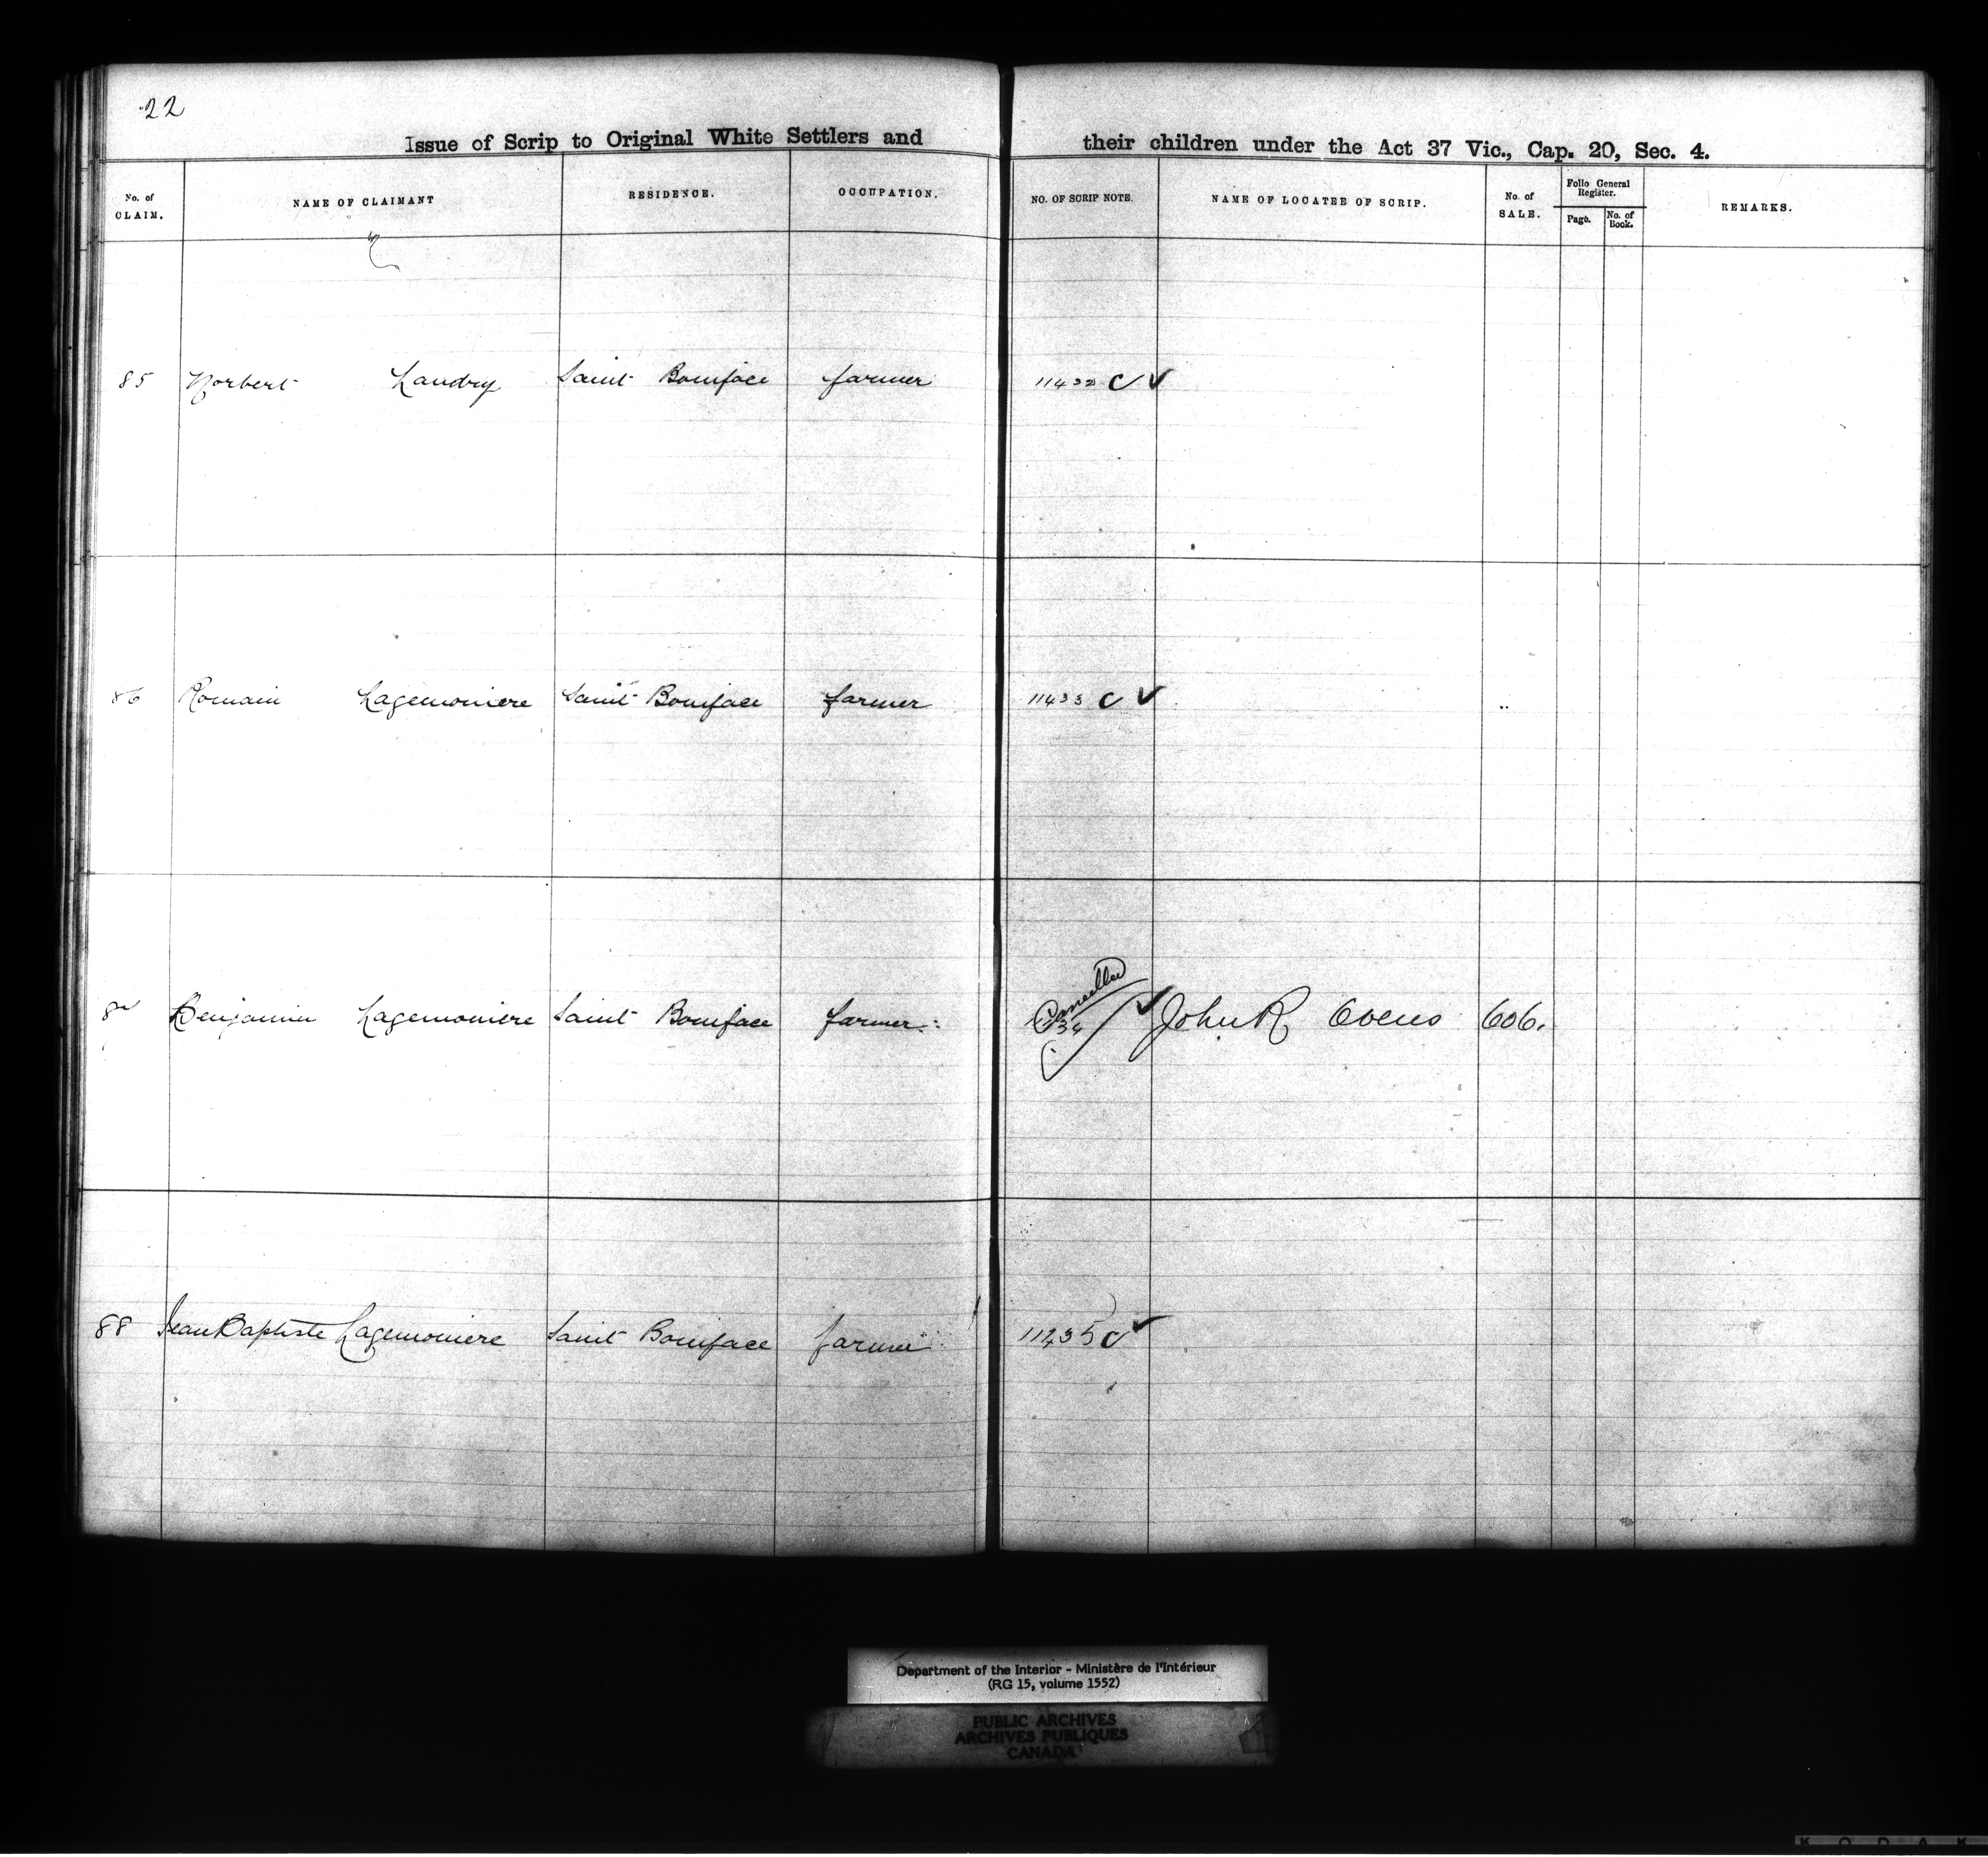 22
Issue of Scrip to Original White Settlers and their children under the Act 37 Vic., Cap. 20, Sec. 4.
No. of CLAIM. NAME OF CLAIMANT RESIDENCE. OCCUPATION. NO. OF SCRIP NOTE. NAME OF LOCATEE OF SCRIP. No. of SALE. Folio General Register. Page. No. of Book. REMARKS.
85 Norbert Landry Saint Boniface farmer 11432 C ✓
86 Romain Lagemoniere Saint Boniface farmer 11433 C ✓
87 Benjamin Lagemoniere Saint Boniface farmer Cancelled 34 ✓ John R Ovens 606.
88 Jean Baptiste Lagemoniere Saint Boniface farmer 11435 C ✓
Department of the Interior - Ministère de l'Intérieur
(RG 15, volume 1552)
PUBLIC ARCHIVES
ARCHIVES PUBLIQUES
CANADA
KODAK